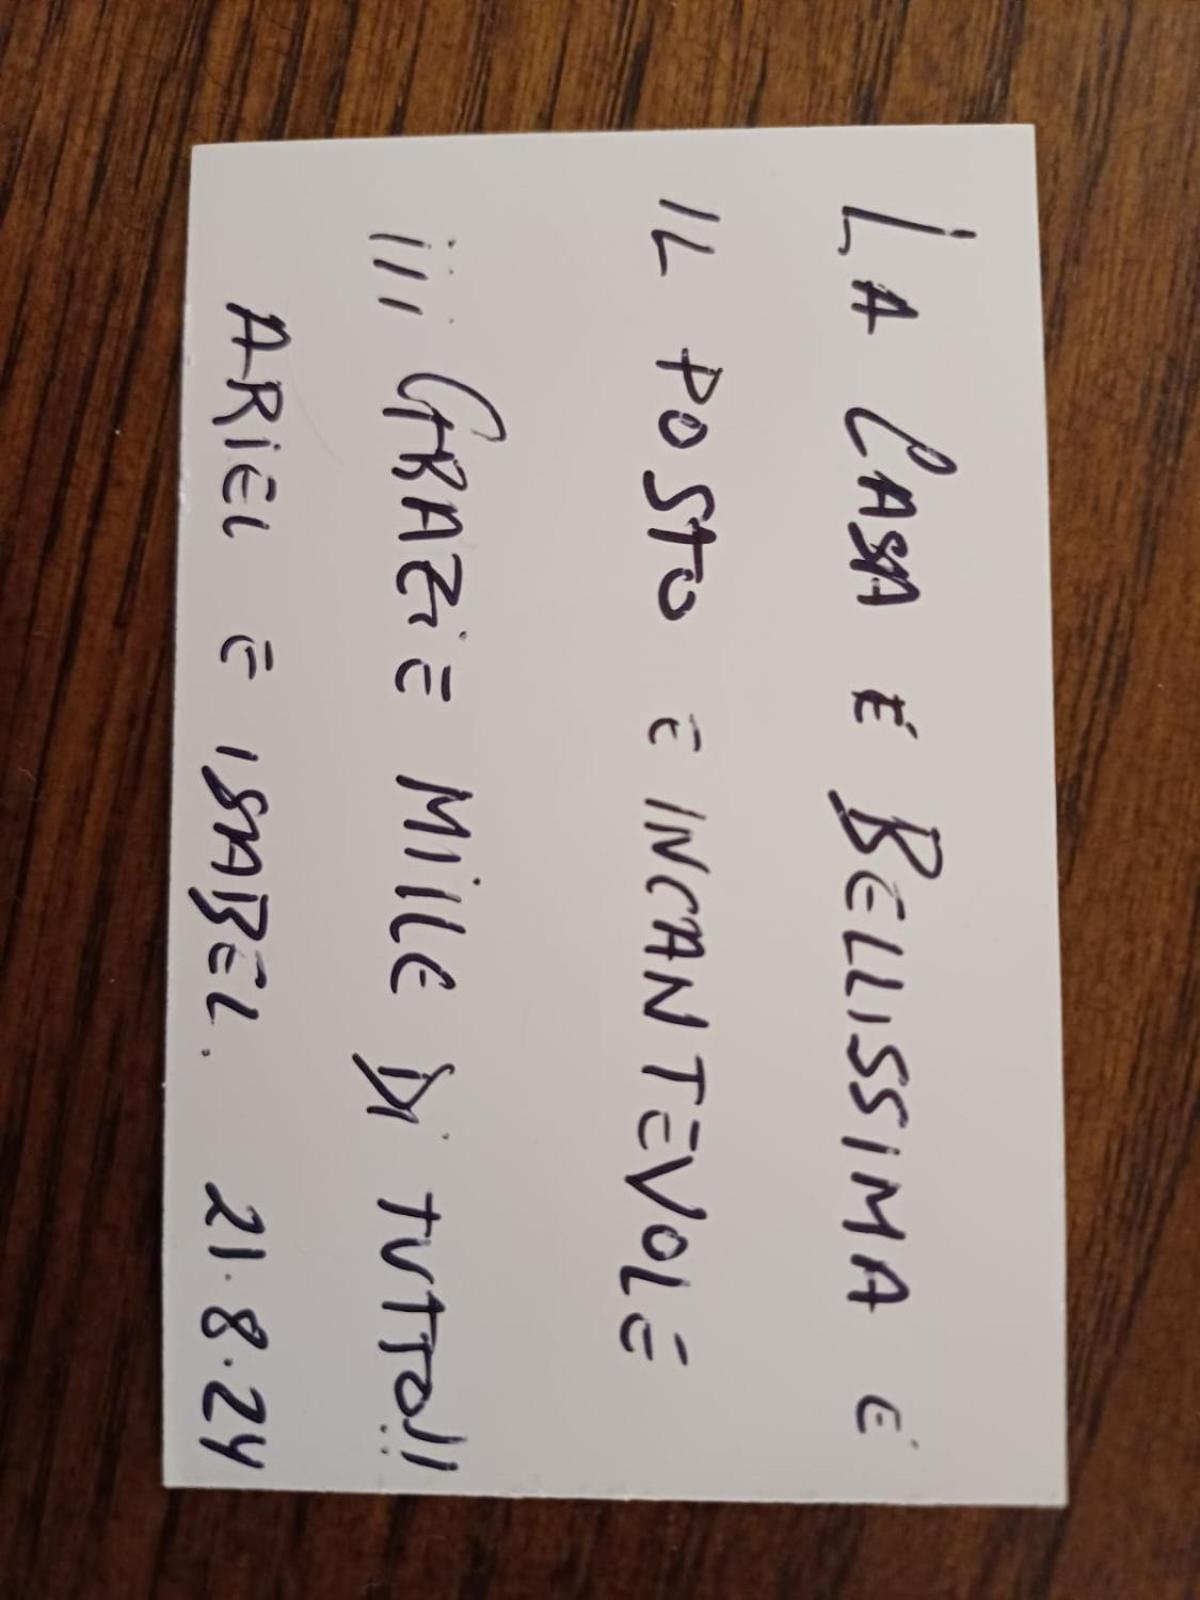 LA CASA É BELLISSIMA E
IL POSTO E INCANTEVOLE
¡¡¡ GRAZIE MILLE DI TUTTO!!!
ARIEL E ISABEL. 21.8.24